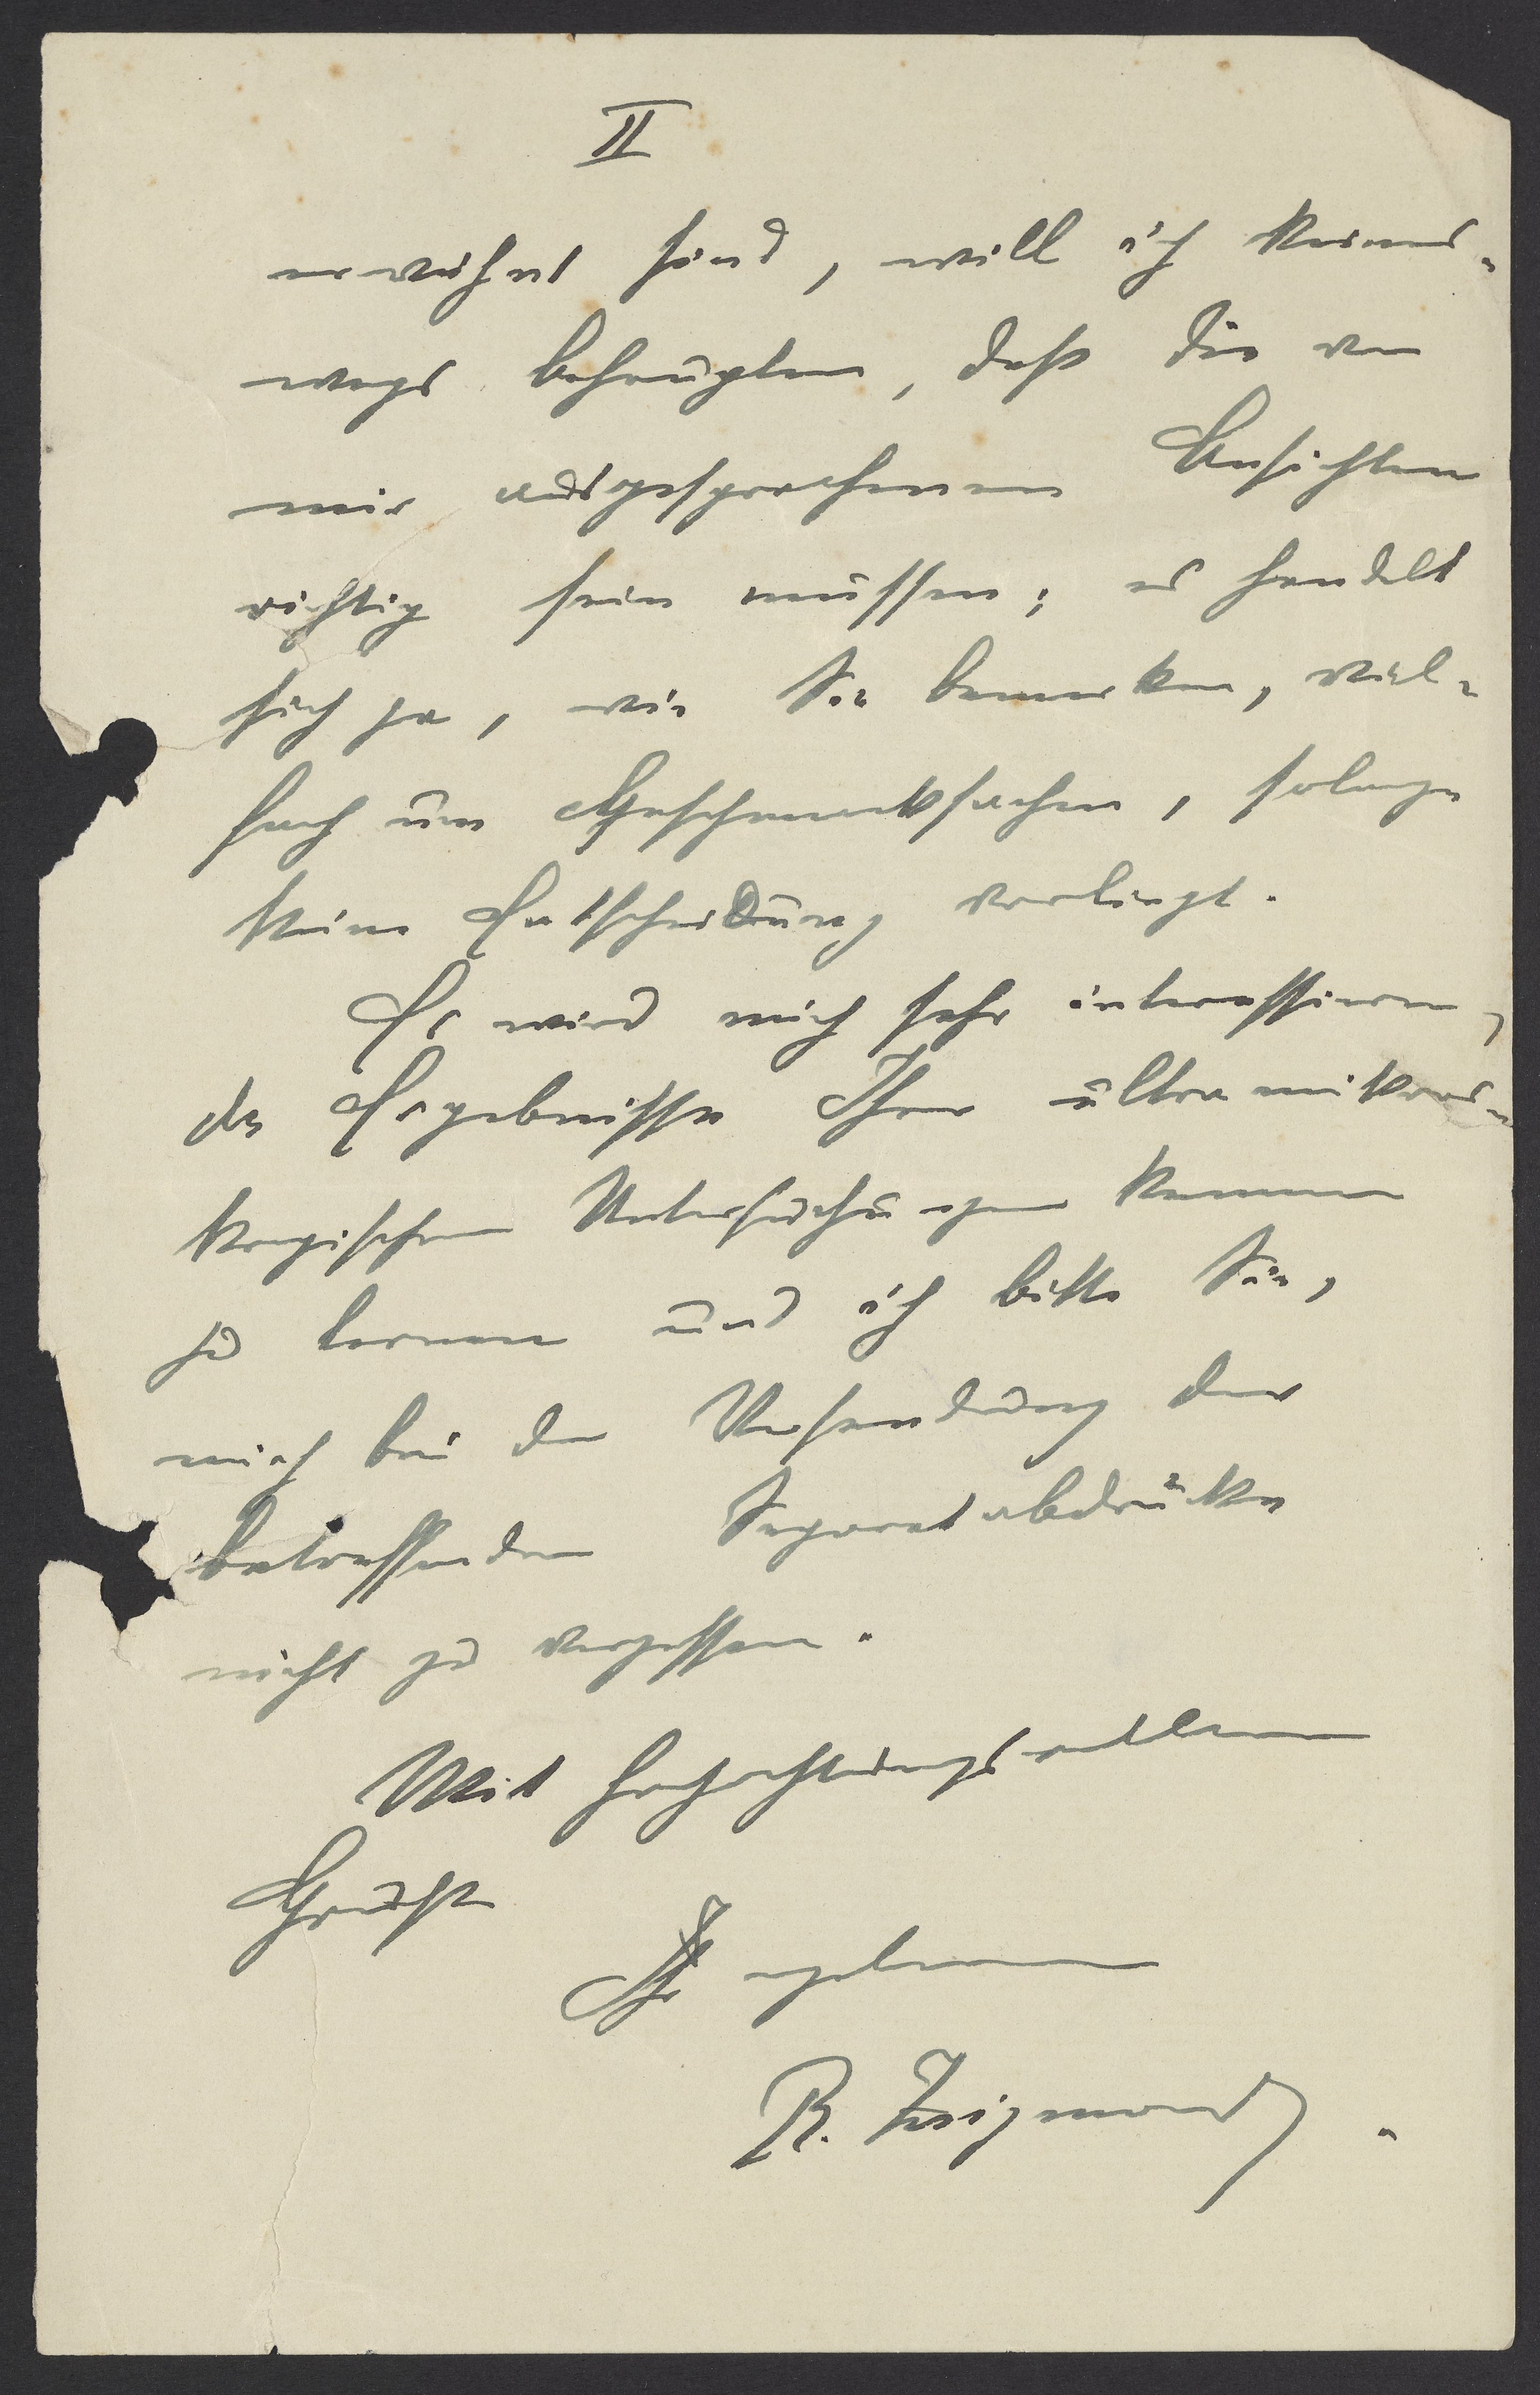 II
erwähnt sind, will ich keines-
wegs behaupten, daß die von
mir ausgesprochenen Ansichten
richtig sein müssen; es handelt
sich ja, wie Sie bemerken, viel-
fach um Geschmacksachen, solange
keine Entscheidung vorliegt.
Es wird mich sehr interessieren,
die Ergebnisse Ihrer ultramikros-
kopischen Untersuchungen kennen
zu lernen und ich bitte Sie,
mich bei der Versendung der
betreffenden Separatabdrücke
nicht zu vergessen.
Mit hochachtungsvollem
Gruße
Ihr ergebener
R. Zsigmondy.